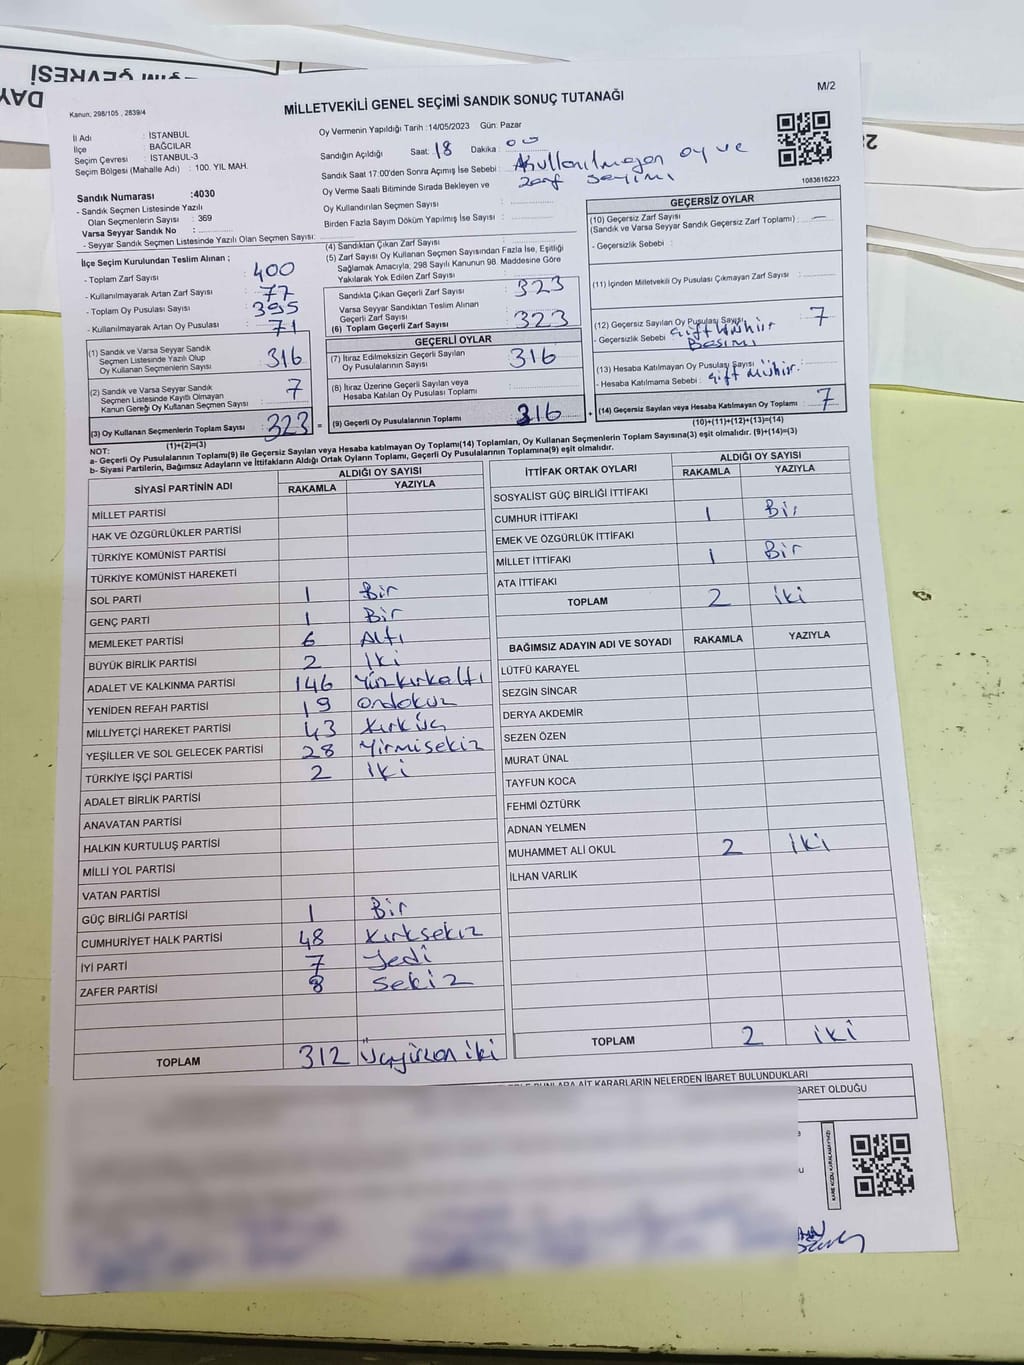 M/2
MİLLETVEKİLİ GENEL SEÇİMİ SANDIK SONUÇ TUTANAĞI
Kanun, 298/105 , 2839/4
İl Adı : İSTANBUL
İlçe : BAĞCILAR
Seçim Çevresi : İSTANBUL-3
Seçim Bölgesi (Mahalle Adı) : 100. YIL MAH.
Sandık Numarası :4030
- Sandık Seçmen Listesinde Yazılı
Olan Seçmenlerin Sayısı : 369
Varsa Seyyar Sandık No :
- Seyyar Sandık Seçmen Listesinde Yazılı Olan Seçmen Sayısı:
Oy Vermenin Yapıldığı Tarih :14/05/2023 Gün: Pazar
Sandığın Açıldığı Saat: 18 Dakika : 00
Sandık Saat 17:00'den Sonra Açımış İse Sebebi : Kullanılmayan oy ve
zarf sayımı
Oy Verme Saati Bitiminde Sırada Bekleyen ve
Oy Kullandırılan Seçmen Sayısı :
Birden Fazla Sayım Döküm Yapılmış İse Sayısı :
1083616223
İlçe Seçim Kurulundan Teslim Alınan ;
- Toplam Zarf Sayısı : 400
- Kullanılmayarak Artan Zarf Sayısı : 77
- Toplam Oy Pusulası Sayısı : 395
- Kullanılmayarak Artan Oy Pusulası : 71
(1) Sandık ve Varsa Seyyar Sandık
Seçmen Listesinde Yazılı Olup
Oy Kullanan Seçmenlerin Sayısı : 316
(2) Sandık ve Varsa Seyyar Sandık
Seçmen Listesinde Kayıtlı Olmayan
Kanun Gereği Oy Kullanan Seçmen Sayısı : 7
(3) Oy Kullanan Seçmenlerin Toplam Sayısı : 323
(1)+(2)=(3)
(4) Sandıktan Çıkan Zarf Sayısı
(5) Zarf Sayısı Oy Kullanan Seçmen Sayısından Fazla İse, Eşitliği
Sağlamak Amacıyla, 298 Sayılı Kanunun 98. Maddesine Göre
Yakılarak Yok Edilen Zarf Sayısı :
Sandıkta Çıkan Geçerli Zarf Sayısı : 323
Varsa Seyyar Sandıktan Teslim Alınan
Geçerli Zarf Sayısı :
(6) Toplam Geçerli Zarf Sayısı : 323
GEÇERLİ OYLAR
(7) İtiraz Edilmeksizin Geçerli Sayılan
Oy Pusulasının Sayısı : 316
(8) İtiraz Üzerine Geçerli Sayılan veya
Hesaba Katılan Oy Pusulası Toplamı :
(9) Geçerli Oy Pusulalarının Toplamı : 316
GEÇERSİZ OYLAR
(10) Geçersiz Zarf Sayısı
(Sandık ve Varsa Seyyar Sandık Geçersiz Zarf Toplamı) : —
- Geçersizlik Sebebi :
(11) İçinden Milletvekili Oy Pusulası Çıkmayan Zarf Sayısı :
(12) Geçersiz Sayılan Oy Pusulası Sayısı : 7
- Geçersizlik Sebebi : Çift Mühür
Basımı
(13) Hesaba Katılmayan Oy Pusulası Sayısı :
- Hesaba Katılmama Sebebi : Çift Mühür.
(14) Geçersiz Sayılan veya Hesaba Katılmayan Oy Toplamı : 7
(10)+(11)+(12)+(13)=(14)
NOT:
a- Geçerli Oy Pusulalarının Toplamı(9) ile Geçersiz Sayılan veya Hesaba katılmayan Oy Toplamı(14) Toplamları, Oy Kullanan Seçmenlerin Toplam Sayısına(3) eşit olmalıdır. (9)+(14)=(3)
b- Siyasi Partilerin, Bağımsız Adayların ve İttifakların Aldığı Ortak Oyların Toplamı, Geçerli Oy Pusulalarının Toplamına(9) eşit olmalıdır.
SİYASİ PARTİNİN ADI ALDIĞI OY SAYISI
RAKAMLA YAZIYLA
MİLLET PARTİSİ
HAK VE ÖZGÜRLÜKLER PARTİSİ
TÜRKİYE KOMÜNİST PARTİSİ
TÜRKİYE KOMÜNİST HAREKETİ
SOL PARTİ 1 Bir
GENÇ PARTİ 1 Bir
MEMLEKET PARTİSİ 6 Altı
BÜYÜK BİRLİK PARTİSİ 2 İki
ADALET VE KALKINMA PARTİSİ 146 Yüzkırkaltı
YENİDEN REFAH PARTİSİ 19 ondokuz
MİLLİYETÇİ HAREKET PARTİSİ 43 Kırküç
YEŞİLLER VE SOL GELECEK PARTİSİ 28 Yirmisekiz
TÜRKİYE İŞÇİ PARTİSİ 2 iki
ADALET BİRLİK PARTİSİ
ANAVATAN PARTİSİ
HALKIN KURTULUŞ PARTİSİ
MİLLİ YOL PARTİSİ
VATAN PARTİSİ
GÜÇ BİRLİĞİ PARTİSİ 1 Bir
CUMHURİYET HALK PARTİSİ 48 Kırksekiz
İYİ PARTİ 7 Yedi
ZAFER PARTİSİ 8 Sekiz
TOPLAM 312 Üçyüzon iki
İTTİFAK ORTAK OYLARI ALDIĞI OY SAYISI
RAKAMLA YAZIYLA
SOSYALİST GÜÇ BİRLİĞİ İTTİFAKI
CUMHUR İTTİFAKI 1 Bir
EMEK VE ÖZGÜRLÜK İTTİFAKI
MİLLET İTTİFAKI 1 Bir
ATA İTTİFAKI
TOPLAM 2 iki
BAĞIMSIZ ADAYIN ADI VE SOYADI RAKAMLA YAZIYLA
LÜTFÜ KARAYEL
SEZGİN SİNCAR
DERYA AKDEMİR
SEZEN ÖZEN
MURAT ÜNAL
TAYFUN KOCA
FEHMİ ÖZTÜRK
ADNAN YELMEN
MUHAMMET ALİ OKUL 2 İki
İLHAN VARLIK
TOPLAM 2 iki
AİT KARARLARIN NELERDEN İBARET BULUNDUKLARI
BARET OLDUĞU